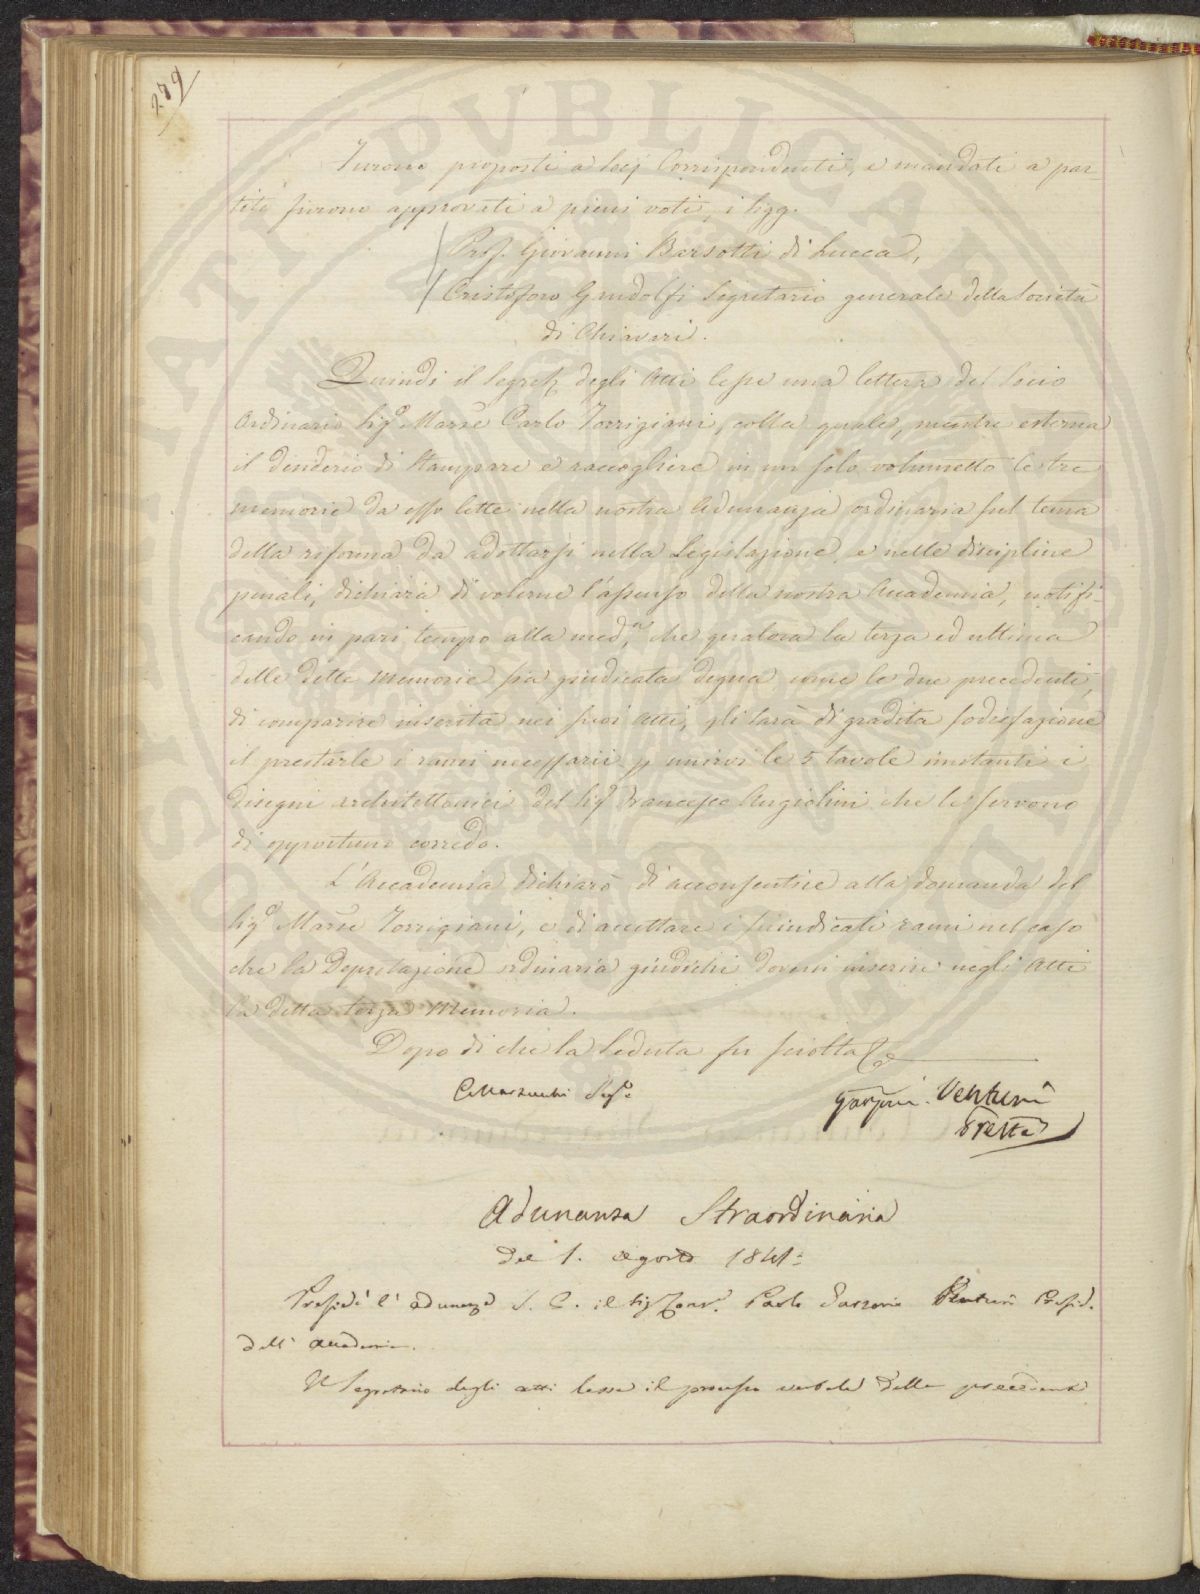 289
Furono proposti a Socj Corrispondenti, e mandati a par
tito furono approvati a pieni voti, i Sigg.
Prof. Giovanni Barsotti di Lucca,
Cristoforo Gandolfi Segretario generale della Società
di Chiaveri.
Quindi il Segret. degli Atti lesse una lettera del Socio
Ordinario Sig.e Marse Carlo Torrigiani, colla quale, mentre esterna
il desiderio di Stampare e raccogliere in un solo volumetto le tre
memorie da esso lette nella nostra Adunanza ordinaria sul tema
della riforma da adottarsi nella Legislazione, e nelle discipline
penali, dichiara di volerne l'assenso della nostra Accademia, notifi-
cando in pari tempo alla med.a, che qualora la terza ed ultima
delle dette Memorie sia giudicata degna come le due precedenti,
di comparire inserita nei suoi Atti, gli sarà di gradita sodisfazione
il prestarle i rami necessarii p unirvi le 5 tavole imitanti i
disegni architettonici del Sig.e Francesco Angiolini che le servono
di opportuno corredo.
L'Accademia dichiarò di acconsentire alla domanda del
Sig.e Marse Torrigiani, e di accettare i suindicati rami nel caso
che la Deputazione ordinaria giudichi doversi inserire negli Atti
la detta terza Memoria.
Dopo di che la Seduta fu sciolta
C. Marzucchi Seg.o
Garzoni Venturi
Presid.e
Adunanza Straordinaria
del 1. Agosto 1841:
Presidè l' adunanza S. E. il Sig. Cons. Paolo Garzoni Venturi Presid.
dell' Accademia.
Il Segretario degli atti lesse il processo verbale della precedente
SOCIETATI PVBLICAE